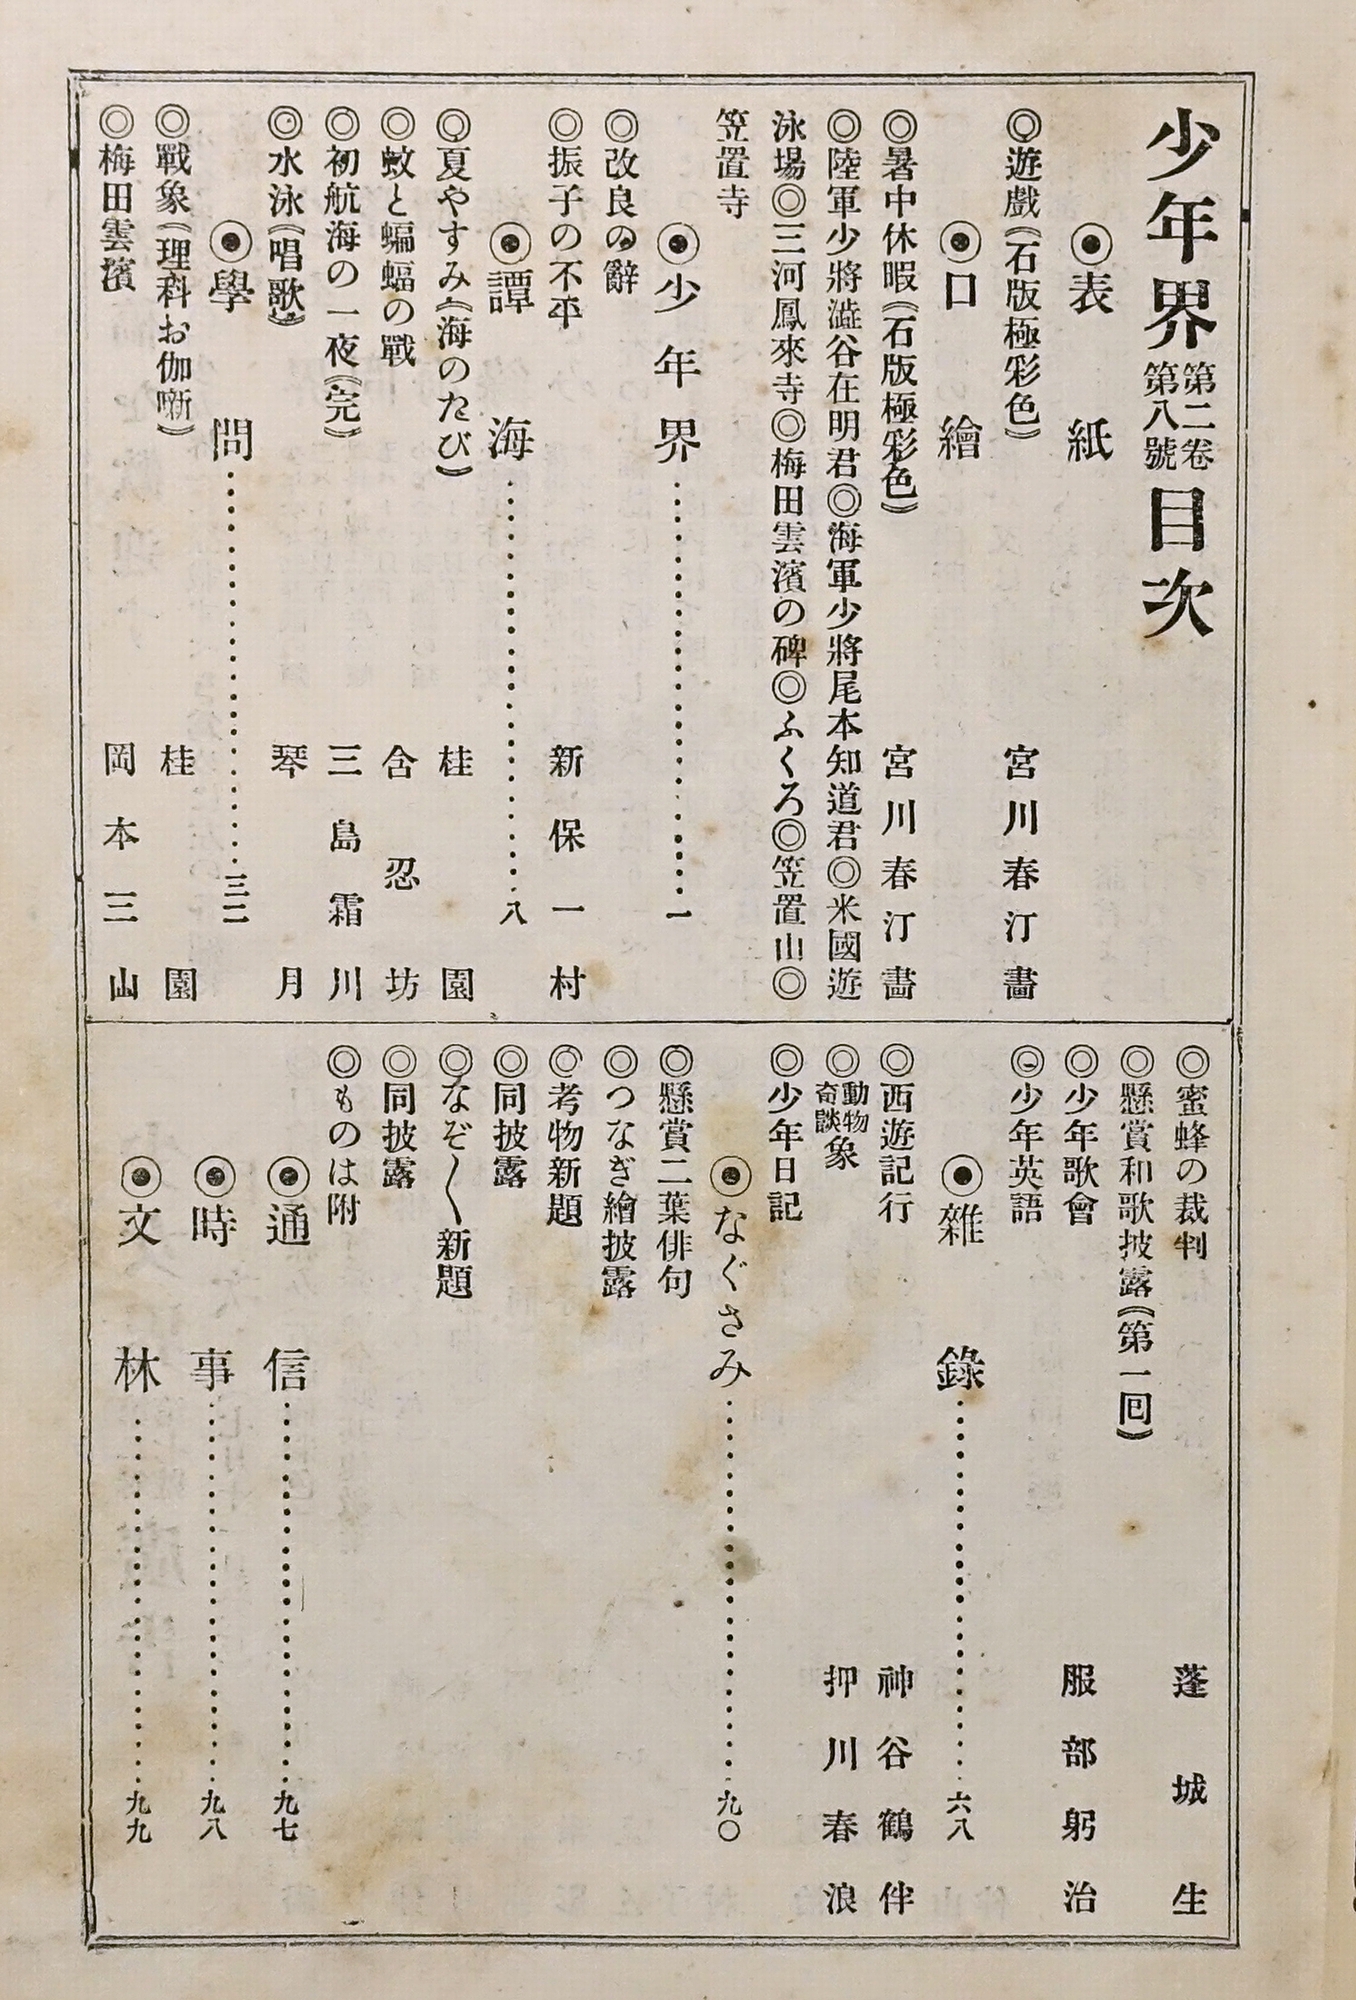 少年界第二卷第八號目次
◉表紙
◎遊戲《石版極彩色》 宮川春汀畵
◉口繪
◎暑中休暇《石版極彩色》 宮川春汀畵
◎陸軍少將澁谷在明君◎海軍少將尾本知道君◎米國遊
泳場◎三河鳳來寺◎梅田雲濱の碑◎ふくろ◎笠置山◎
笠置寺
◉少年界………一
◎改良の辭
◎振子の不平 新保一村
◉譚海………八
◎夏やすみ《海のたび》 桂園
◎蚊と蝙蝠の戰 含忍坊
◎初航海の一夜《完》 三島霜川
◎水泳《唱歌》 琴月
◉學問………三二
◎戰象《理科お伽噺》 桂園
◎梅田雲濱 岡本三山
◎蜜蜂の裁判 蓬城生
◎懸賞和歌披露《第一回》
◎少年歌會 服部躬治
◎少年英語
◉雜錄………六八
◎西遊記行 神谷鶴伴
◎動物奇談象 押川春浪
◎少年日記
◉なぐさみ………九〇
◎懸賞二葉俳句
◎つなぎ繪披露
◎考物新題
◎同披露
◎なぞ〱新題
◎同披露
◎ものは附
◉通信………九七
◉時事………九八
◉文林………九九